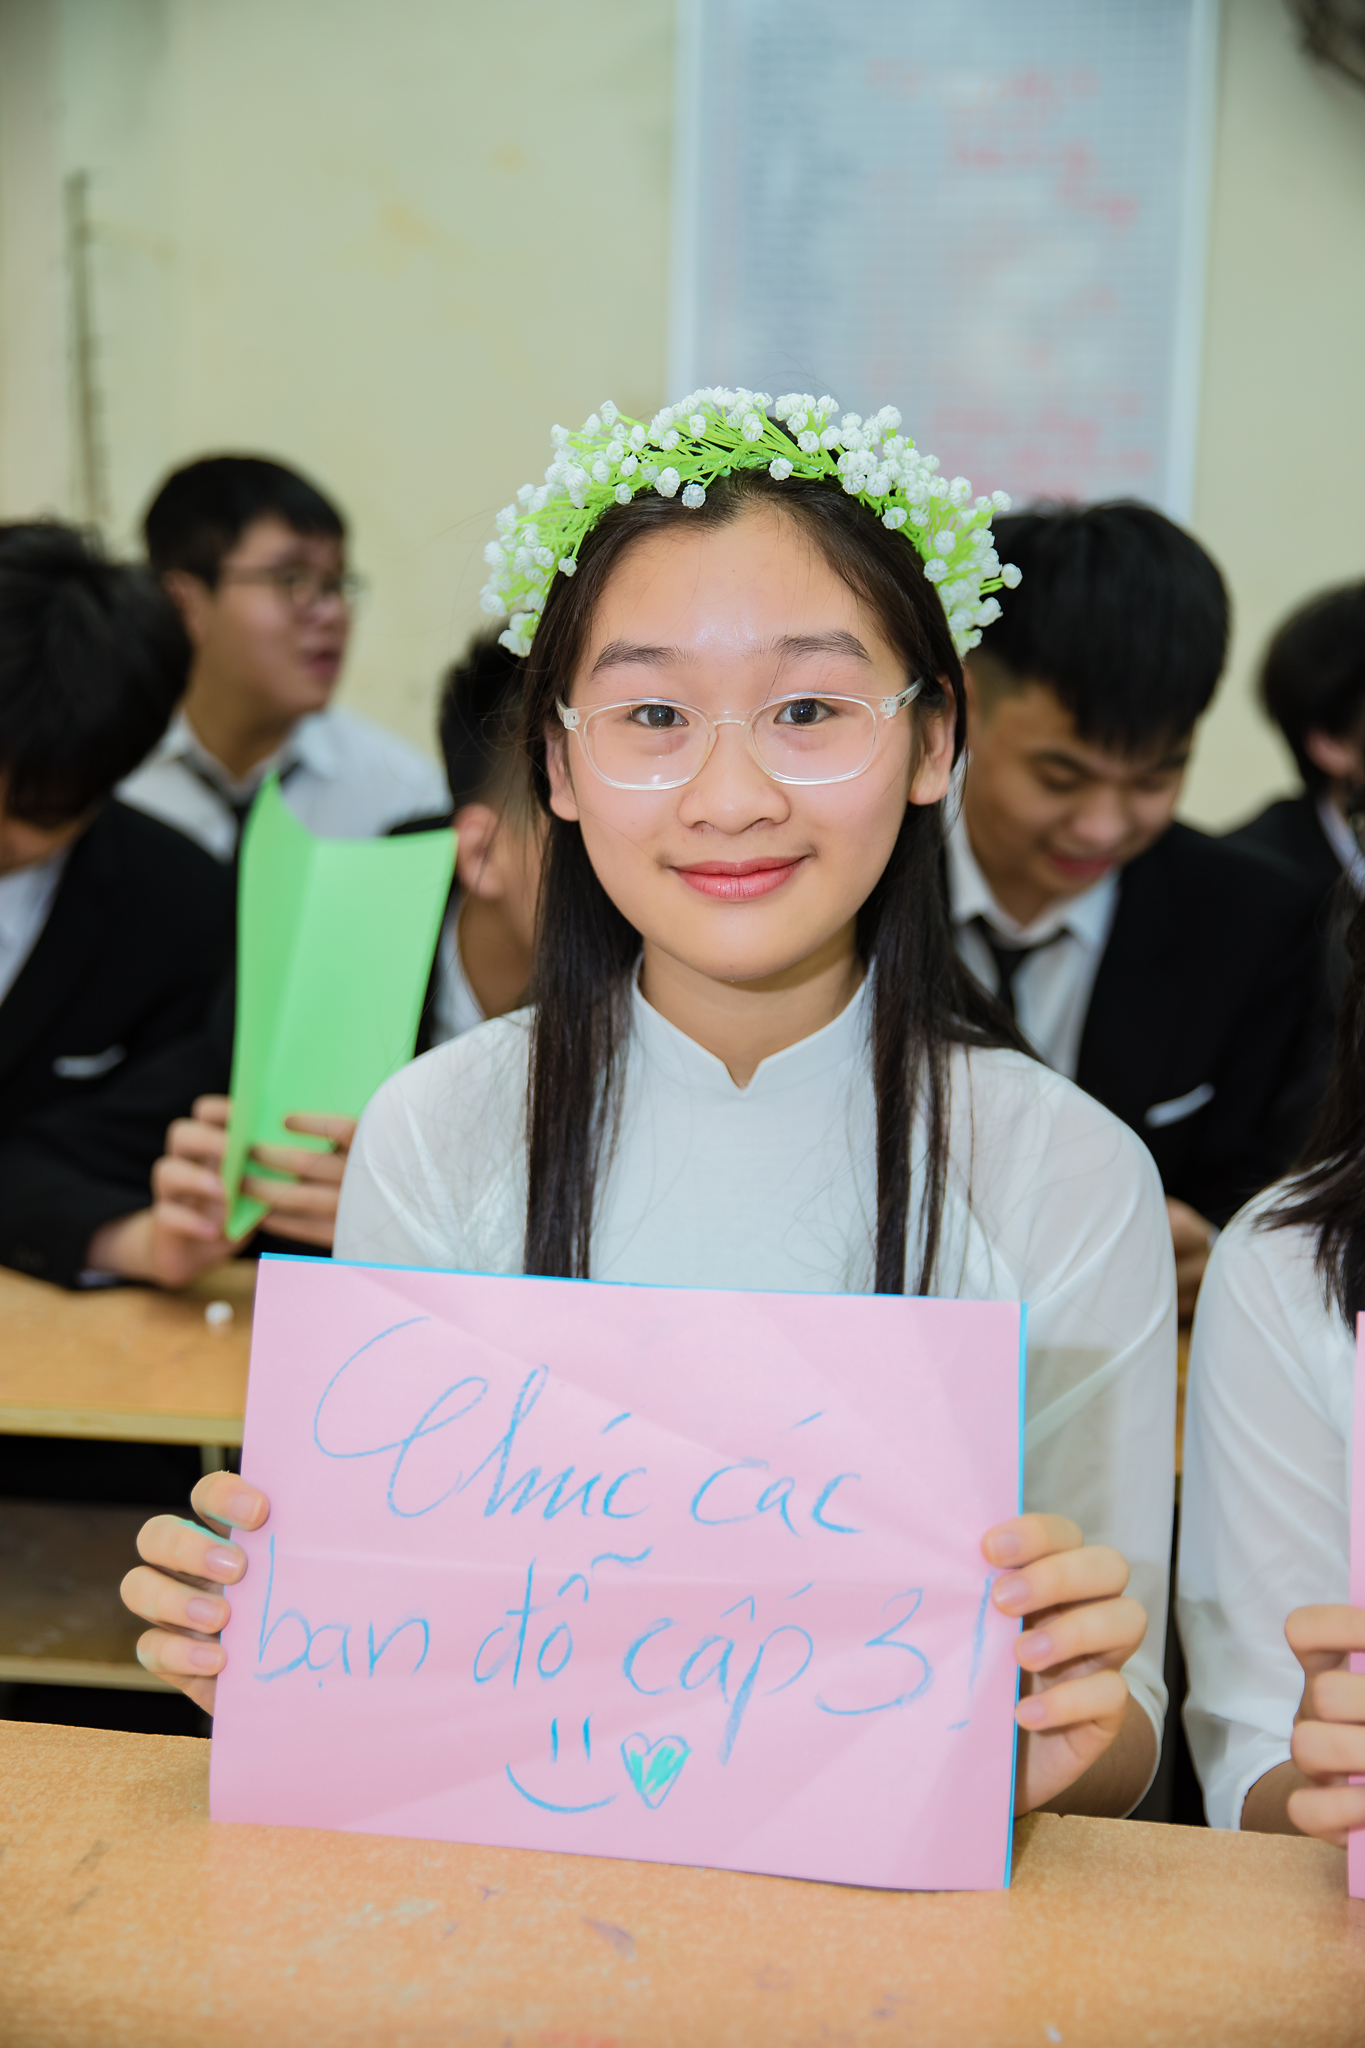 Chúc các
bạn đỗ cấp 3!